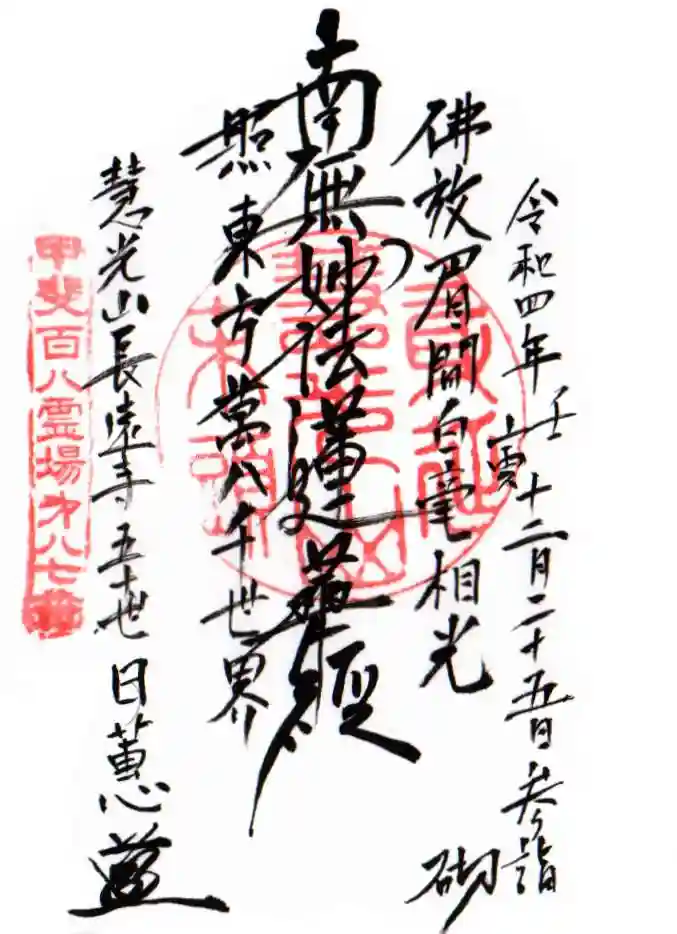 令和四年壬寅十二月二十五日参詣
砌
佛放眉間白毫相光
南無妙法蓮華経
照東方萬八千世界
慧光山長遠寺五十世 日蕙
甲斐百八霊場第八七番